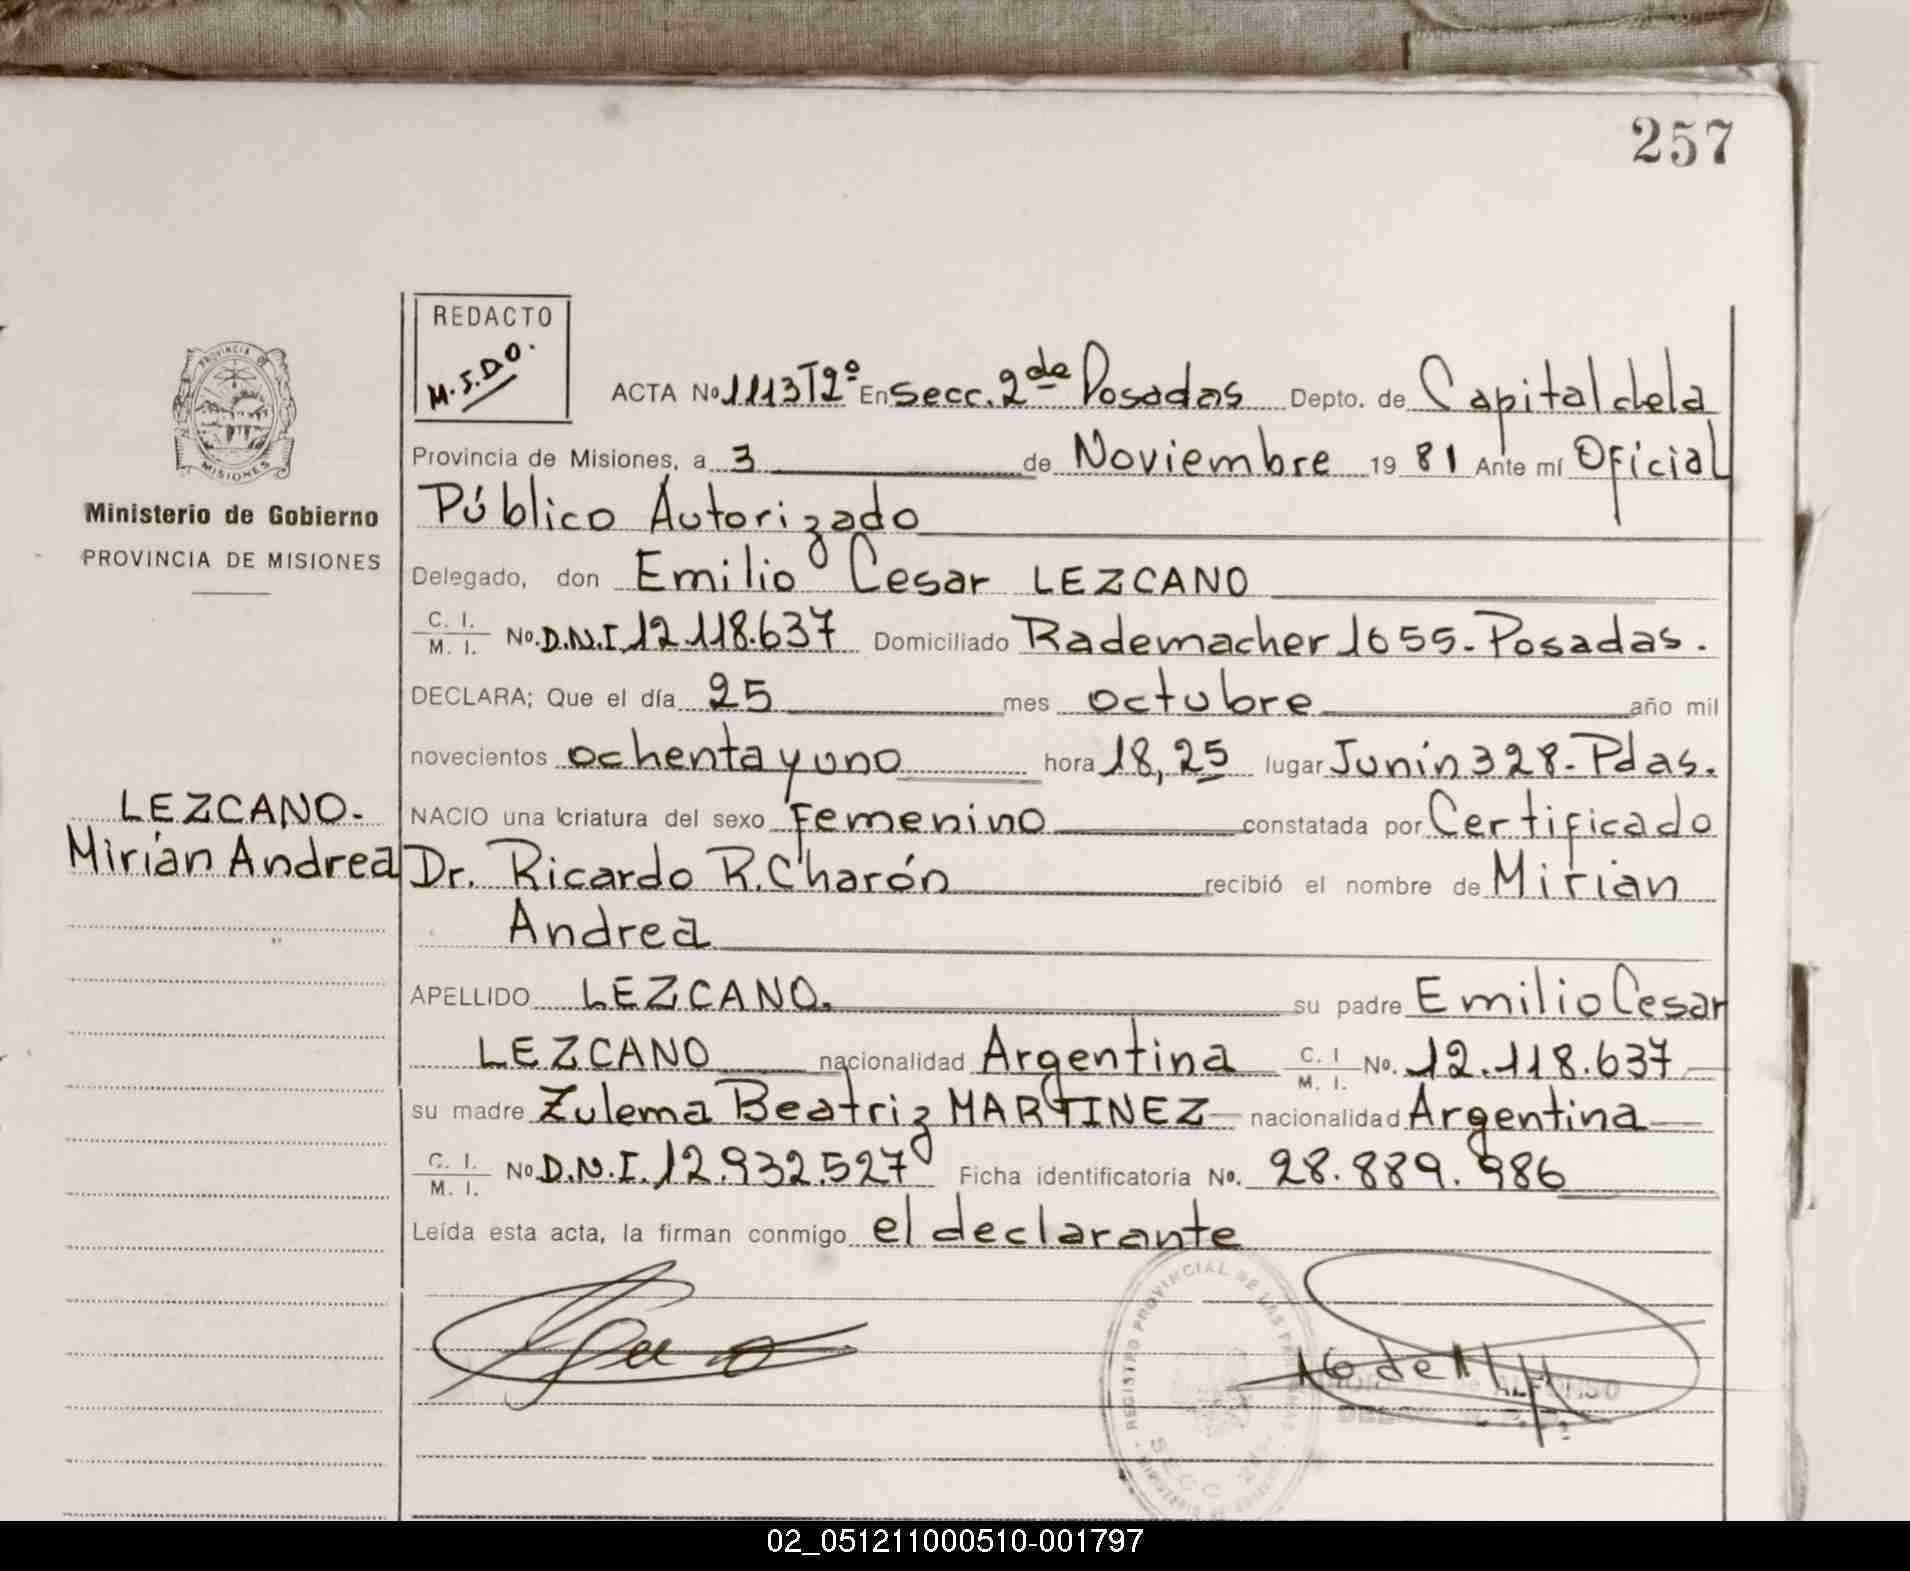 257
REDACTO
M.S.D.O.
ACTA No 1113 T2º En Secc. 2da Posadas Depto. de Capital de la
Provincia de Misiones, a 3 de Noviembre 19 81 Ante mí Oficial
Público Autorizado
Delegado, don Emilio Cesar LEZCANO
C. I. M. I. No. D.N.I. 12.118.637 Domiciliado Rademacher 1655. Posadas.
DECLARA; Que el día 25 mes octubre año mil
novecientos ochenta y uno hora 18,25 lugar Junin 328. Pdas.
NACIO una criatura del sexo Femenino constatada por Certificado
Dr. Ricardo R. Charón recibió el nombre de Mirian
Andrea
APELLIDO LEZCANO. su padre Emilio Cesar
LEZCANO nacionalidad Argentina C. I M. I. No. 12.118.637
su madre Zulema Beatriz MARTINEZ nacionalidad Argentina
C. I. M. I. No D.N.I. 12.932.527 Ficha identificatoria No. 28.889.986
Leída esta acta, la firman conmigo el declarante
PROVINCIA DE
MISIONES
Ministerio de Gobierno
PROVINCIA DE MISIONES
LEZCANO.
Mirian Andrea
REGISTRO PROVINCIAL DE LAS PERSONAS
SECC
02_051211000510-001797